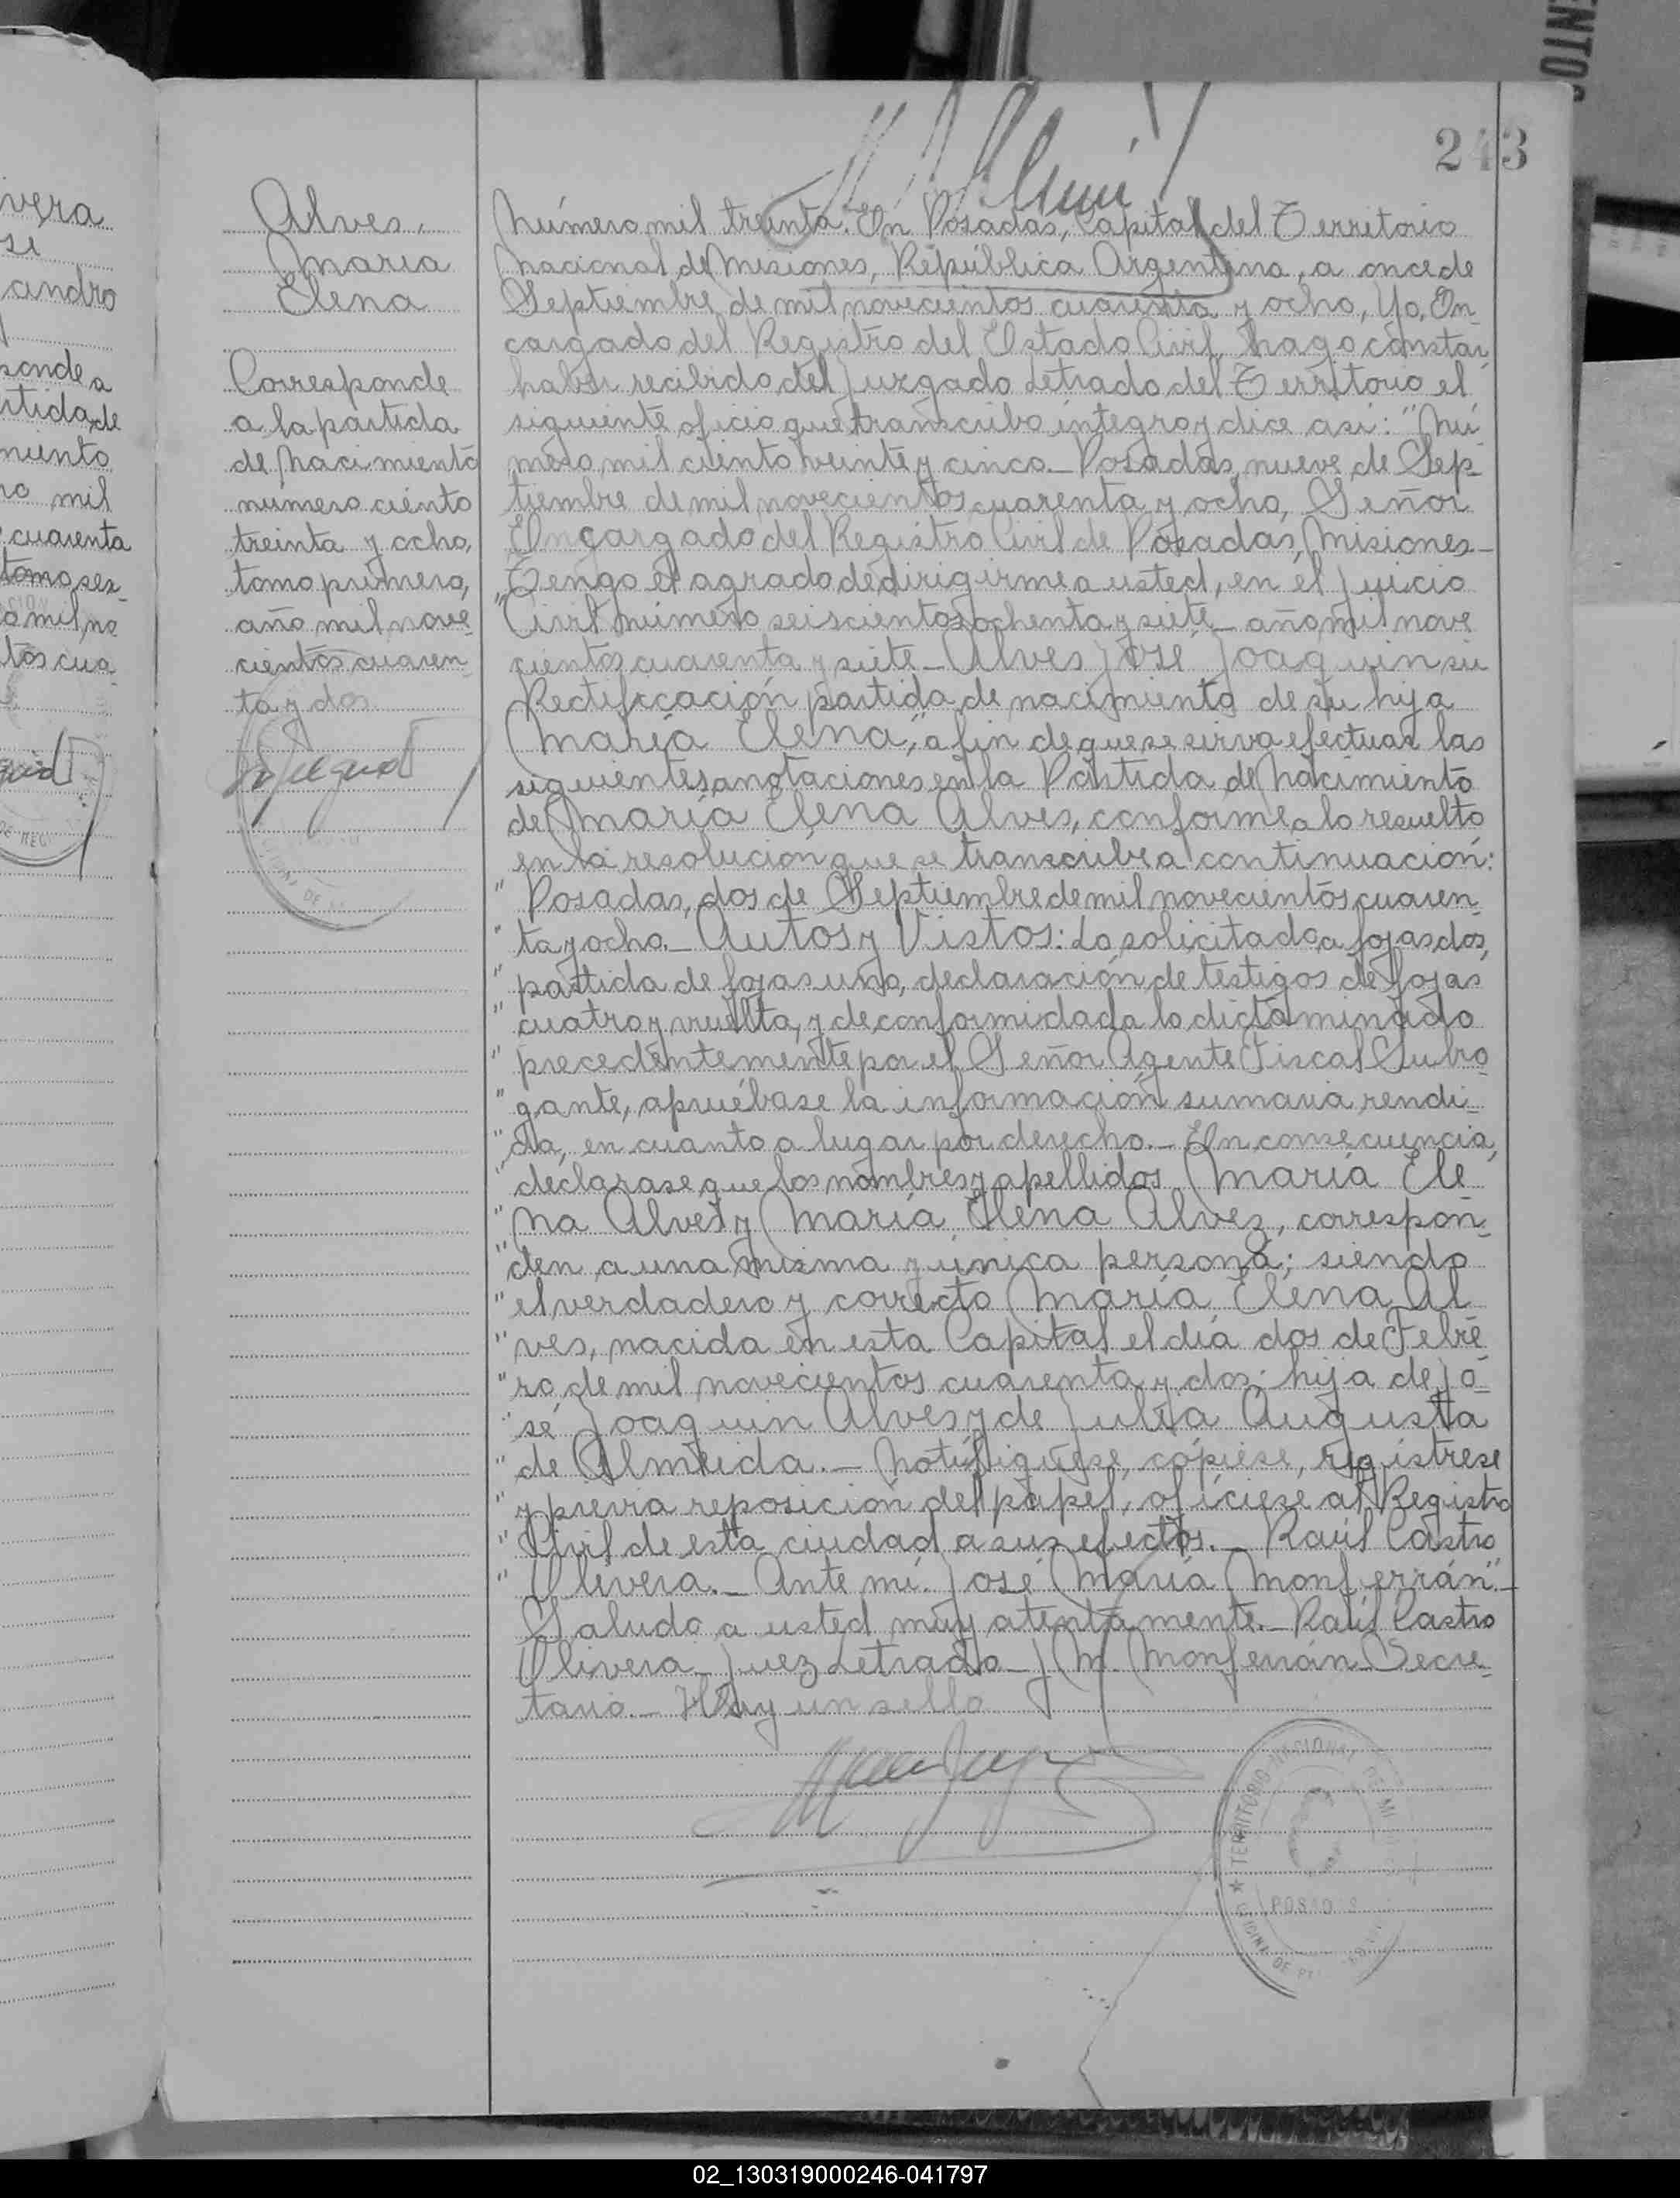 243
Alves,
María
Elena
Corresponde
a la partida
de nacimiento
numero ciento
treinta y ocho,
tomo primero,
año mil nove-
cientos cuaren-
ta y dos
Número mil treinta. En Posadas, Capital del Territorio
Nacional de Misiones, República Argentina, a once de
Septiembre de mil novecientos cuarenta y ocho, Yo, En-
cargado del Registro del Estado Civil, hago constar
haber recibido del Juzgado Letrado del Territorio el
siguiente oficio que transcribo íntegro y dice así: "Nú-
mero mil ciento veinte y cinco._ Posadas, nueve de Sep-
tiembre de mil novecientos cuarenta y ocho, Señor
Encargado del Registro Civil de Posadas, Misiones_
Tengo el agrado de dirigirme a usted, en el Juicio
"Civil número seiscientos ochenta y siete_ año mil nove
cientos cuarenta y siete_ Alves José Joaquin su
Rectificación partida de nacimiento de su hija
María Elena," a fin de que se sirva efectuar las
siguientes anotaciones en la Partida de Nacimiento
de María Elena Alves, conforme a lo resuelto
en la resolución que se transcribe a continuación:
" Posadas, dos de Septiembre de mil novecientos cuaren-
" ta y ocho._ Autos y Vistos: Lo solicitado a fojas dos,
" partida de fojas uno, declaración de testigos de fojas
" cuatro y vuelta, y de conformidad a lo dictaminado
" precedentemente por el Señor Agente Fiscal Subro-
" gante, apruébase la información sumaria rendi-
" da, en cuanto a lugar por derecho._ En consecuencia,
" declarase que los nombres y apellidos María Ele-
" na Alves y María Elena Alvez, correspon-
" den a una misma y única persona; siendo
" el verdadero y correcto María Elena Al
" ves, nacida en esta Capital el día dos de Febre
" ro de mil novecientos cuarenta y dos; hija de Jo-
" sé Joaquin Alves y de Julia Augusta
" de Almeida._ Notífiquese, cópiese, regístrese
" y previa reposición del papel, ofíciese al Registro
" Civil de esta ciudad a sus efectos._ Raúl Castro
" Olivera._ Ante mí. José María Monferrán"_
Saludo a usted muy atentamente._ Raúl Castro
Olivera_ Juez Letrado_ J. M. Monferrán_ Secre-
tario._ Hay un sello
TERRITORIO NACIONAL DE MI
POSADAS
OFICINA DE
02_130319000246-041797